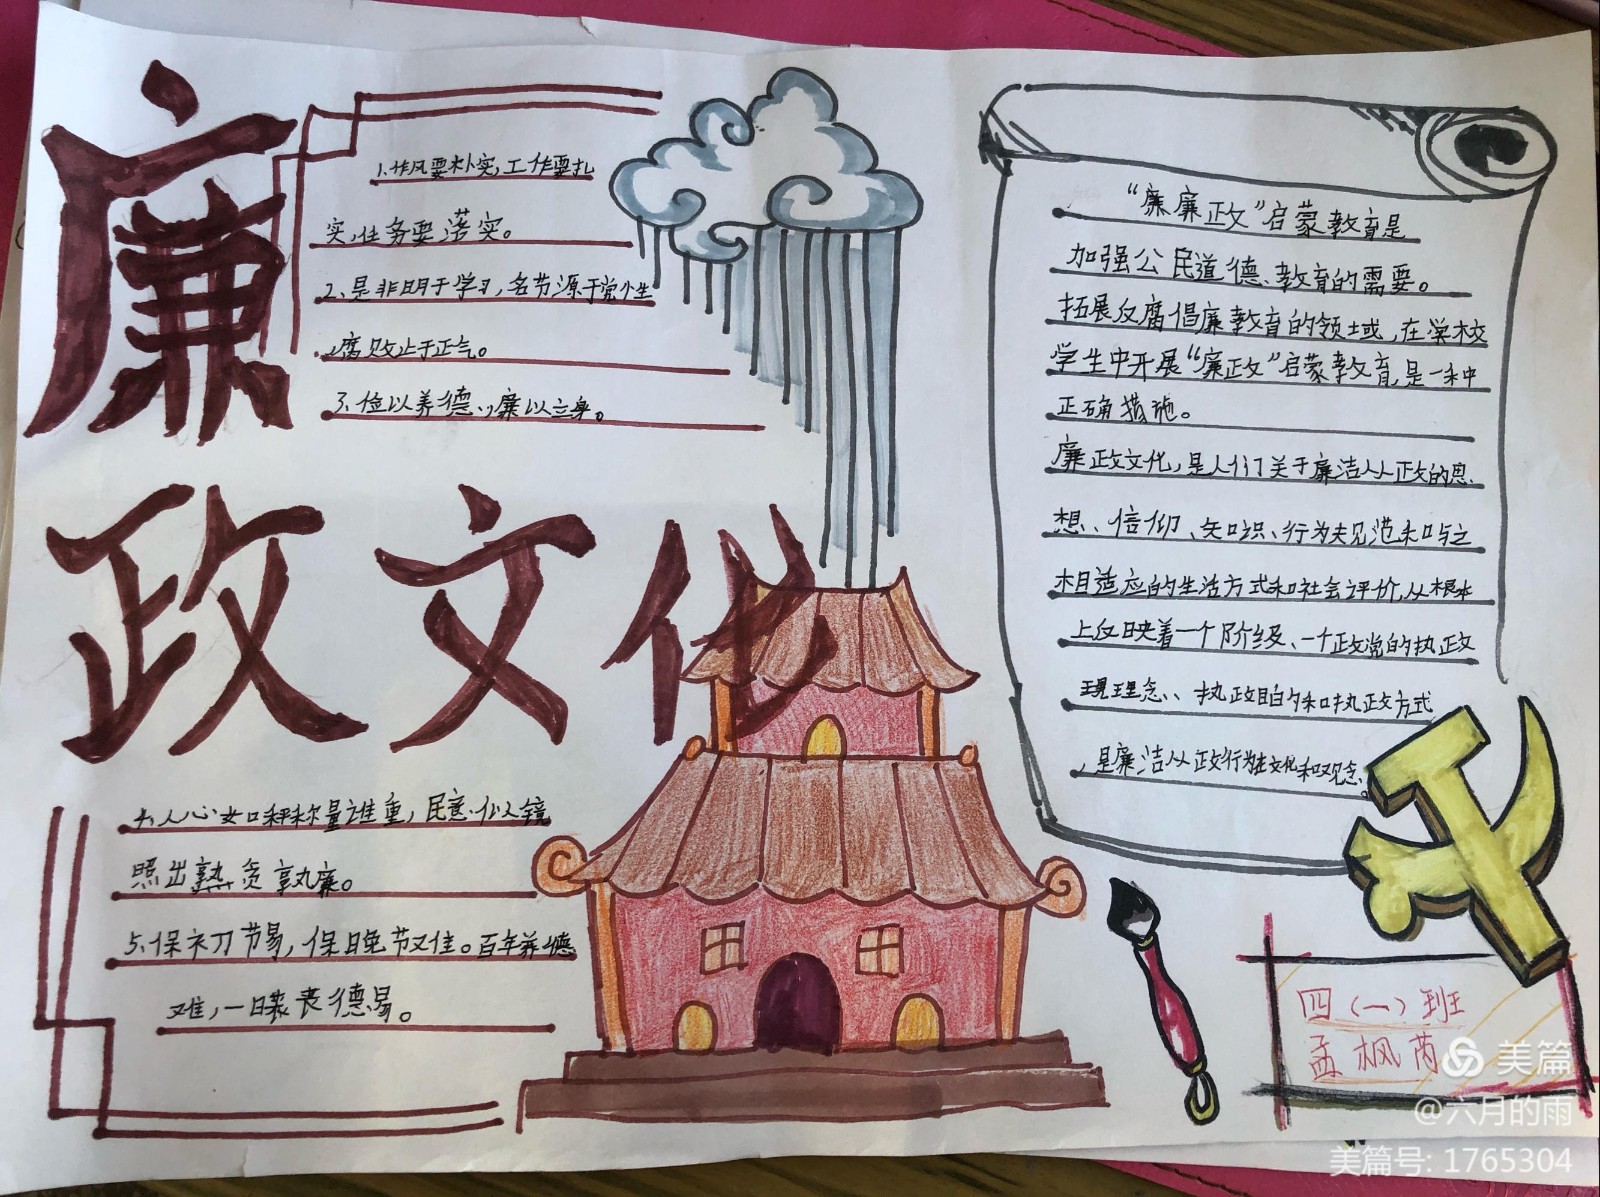 廉
政文化
1.作风要朴实,工作要扎
实,任务要落实。
2、是非明于学习,名节源于党性
,腐败止于正气。
3、俭以养德,廉以立身。
4、人心如秤称量谁重,民意似镜
照出孰贪孰廉。
5、保初节易,保晚节难。百年养德
难,一日丧德易。
“廉廉政”启蒙教育是
加强公民道德、教育的需要。
拓展反腐倡廉教育的领域,在学校
学生中开展“廉政”启蒙教育,是一种
正确措施。
廉政文化,是人们关于廉洁从政的思
想、信仰、知识、行为规范和与之
相适应的生活方式和社会评价,从根本
上反映着一个阶级、一个政党的执政
理念、执政目的和执政方式
,是廉洁从政行为在文化和观念
四(一)班
孟枫芮
美篇
@六月的雨
美篇号: 1765304